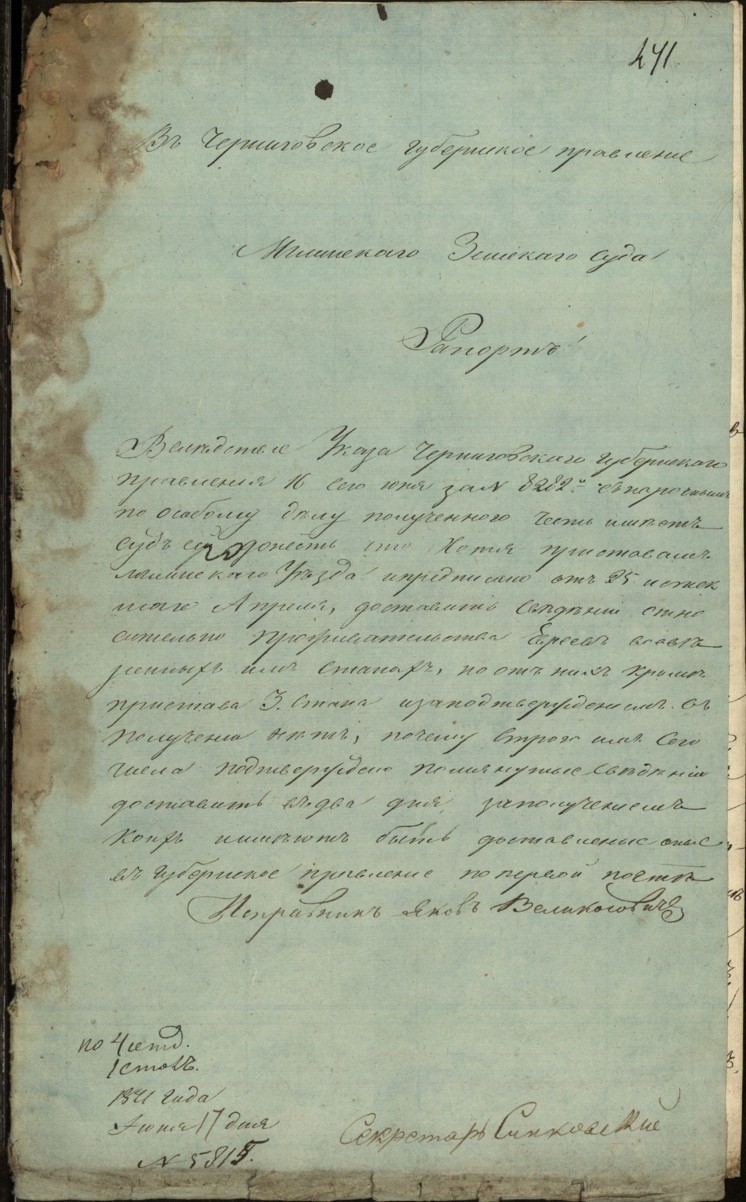 471
Въ Черниговское губернское правление
Мглинскаго Земскаго суда
Рапортъ
Вследствие Указа Черниговскаго губернскаго
правления 16 сего юня за № 8282м съ нарочнымъ
по особому делу полученного честь имеетъ
судъ сей донесть что Хотя приставамъ
Мглинскаго Уезда и предписано отъ 25 истек
шаго Апреля, доставить сведении отно
сительно Евреевъ во вве
ренныхъ имъ станахъ, но отъ нихъ кроме
пристава 3. стана и за подтверждениемъ въ
получении нетъ, почему строго имъ сего
числа подтверждено помянутые сведении
доставить въ два дня за получениемъ
коихъ имеютъ быть доставлены оные
въ губернское правление по первой почте
Исправникъ Яковъ Великосовичъ
по 4 отд.
1 столъ.
1841 года
Июня 17 дня
№ 5815.
Секретарь Синковский